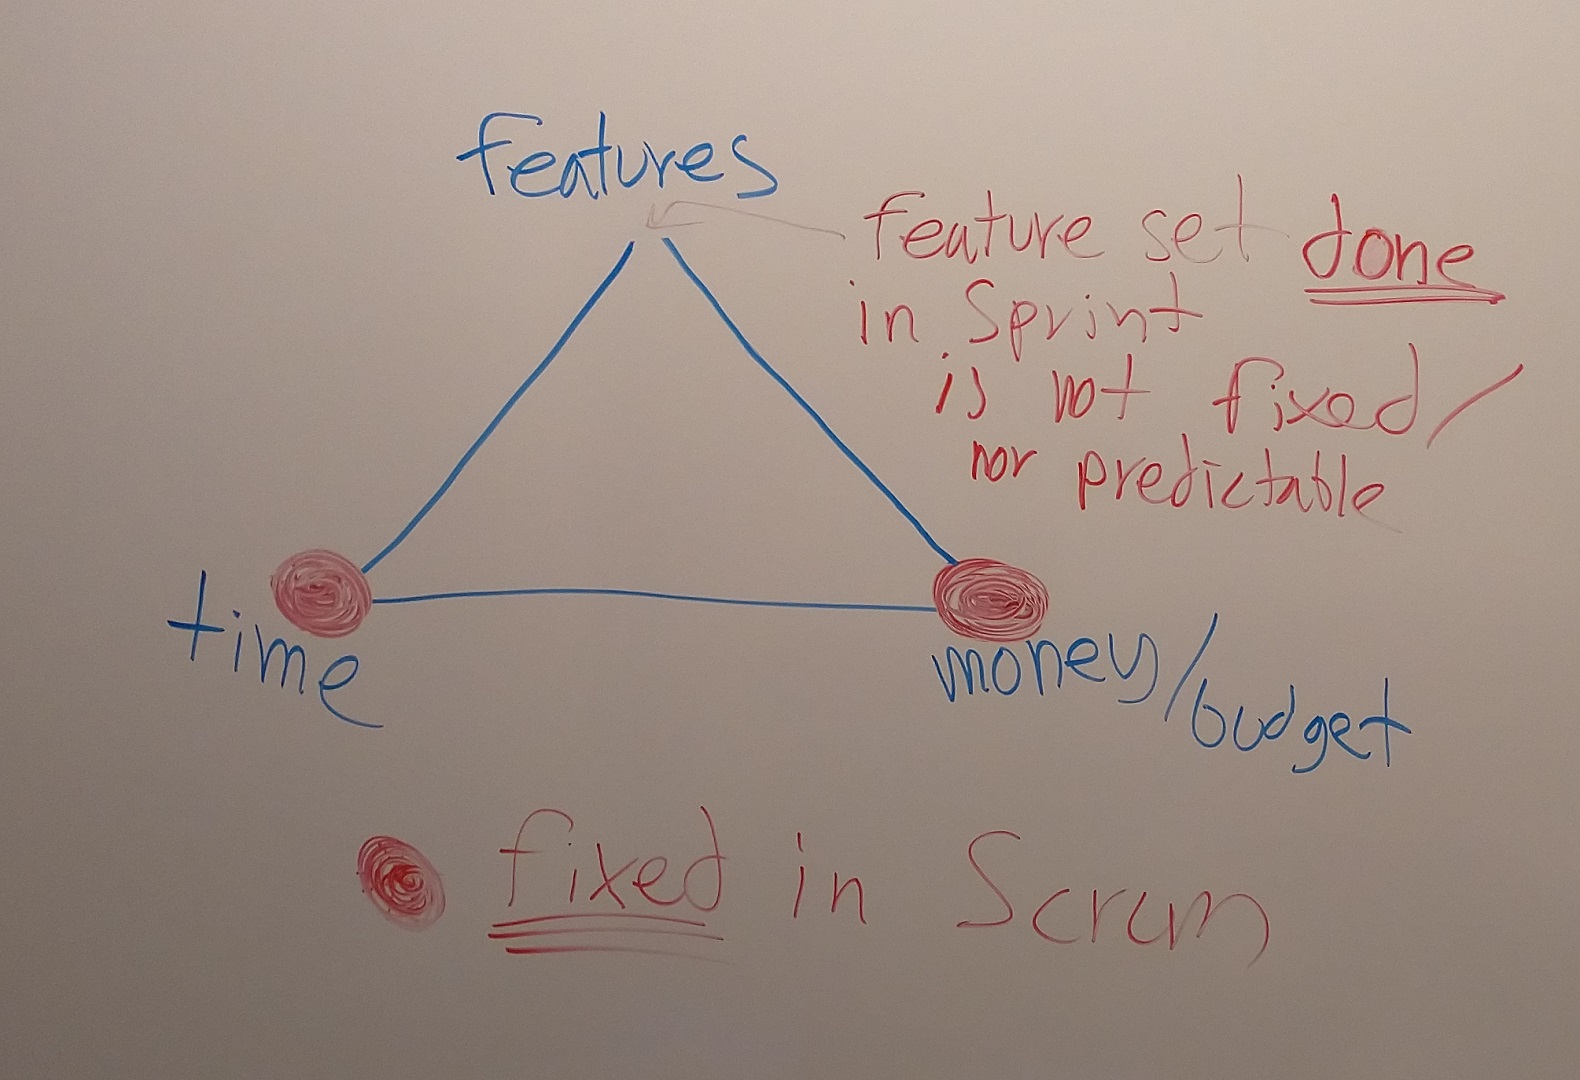 features
feature set done
in Sprint
is not fixed/
nor predictable
time
money/
budget
fixed in Scrum